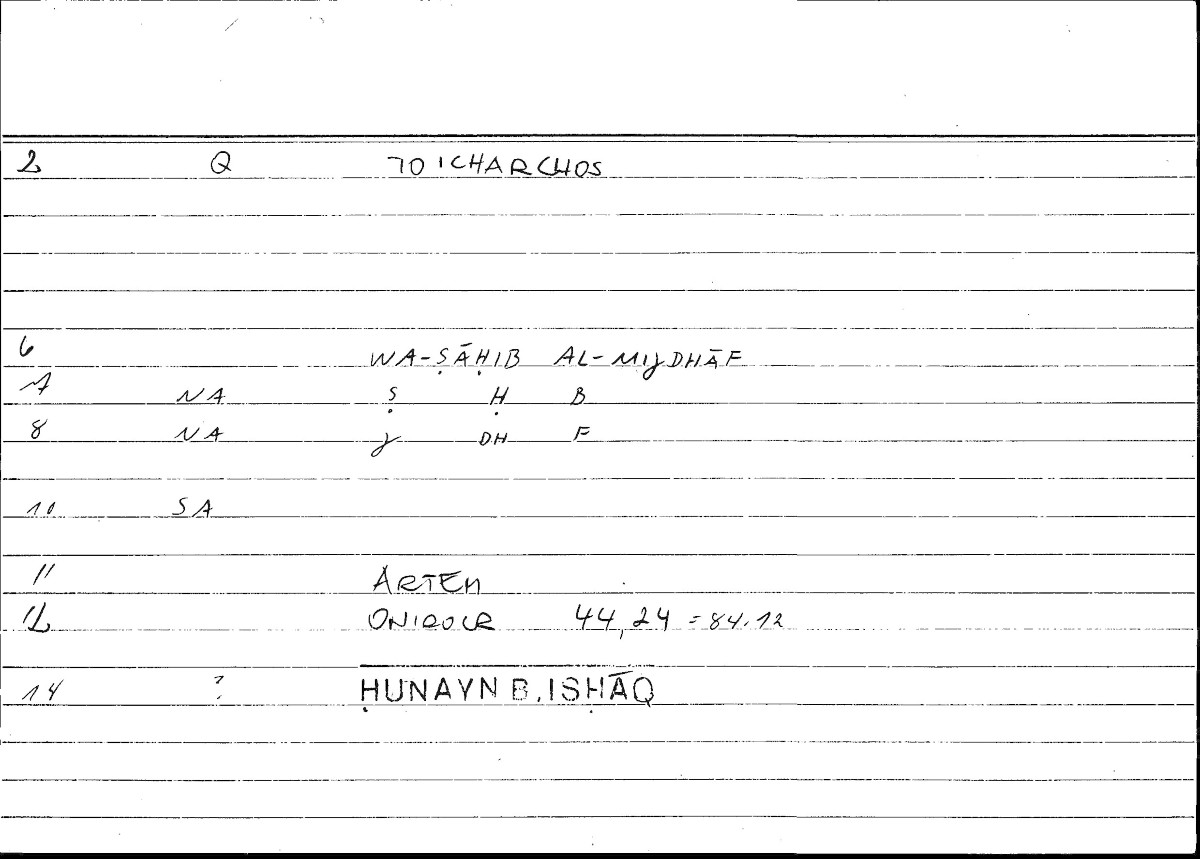 2 Q TOICHARCHOS
6 WA-ṢĀḤIB AL-MIJDHĀF
7 NA Ṣ Ḥ B
8 NA J DH F
10 SA
11 ARTEM
12 ONIROCR 44,24 = 84.12
14 ? ḤUNAYN B. ISḤĀQ